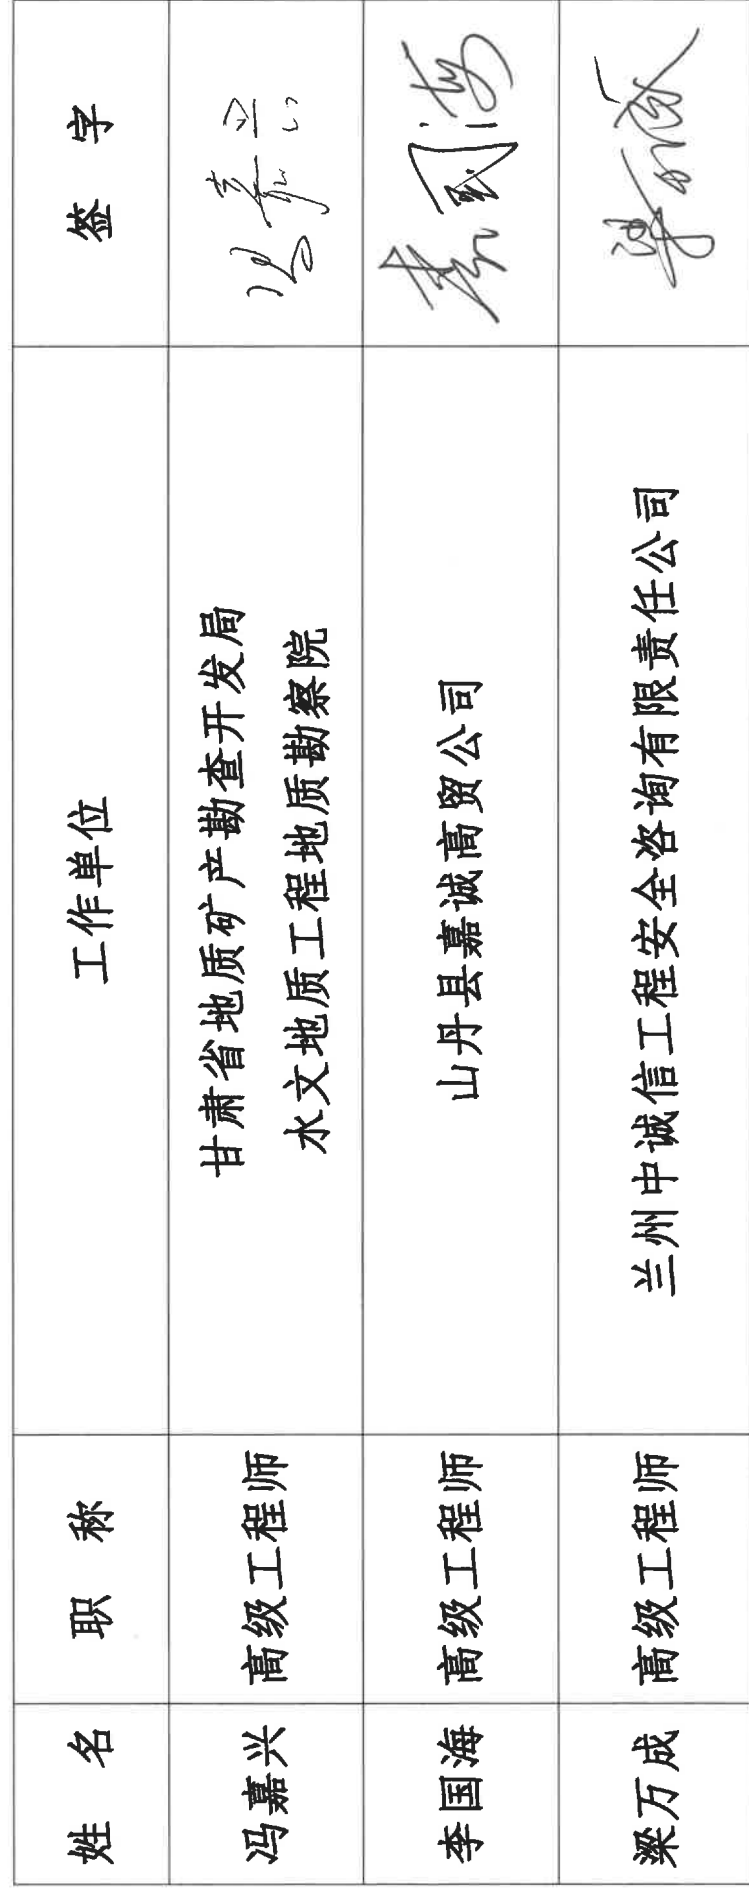 姓 名 职 称 工作单位 签 字
冯嘉兴 高级工程师 甘肃省地质矿产勘查开发局
水文地质工程地质勘察院 冯嘉兴
李国海 高级工程师 山丹县嘉诚商贸公司 李国海
梁万成 高级工程师 兰州中诚信工程安全咨询有限责任公司 梁万成